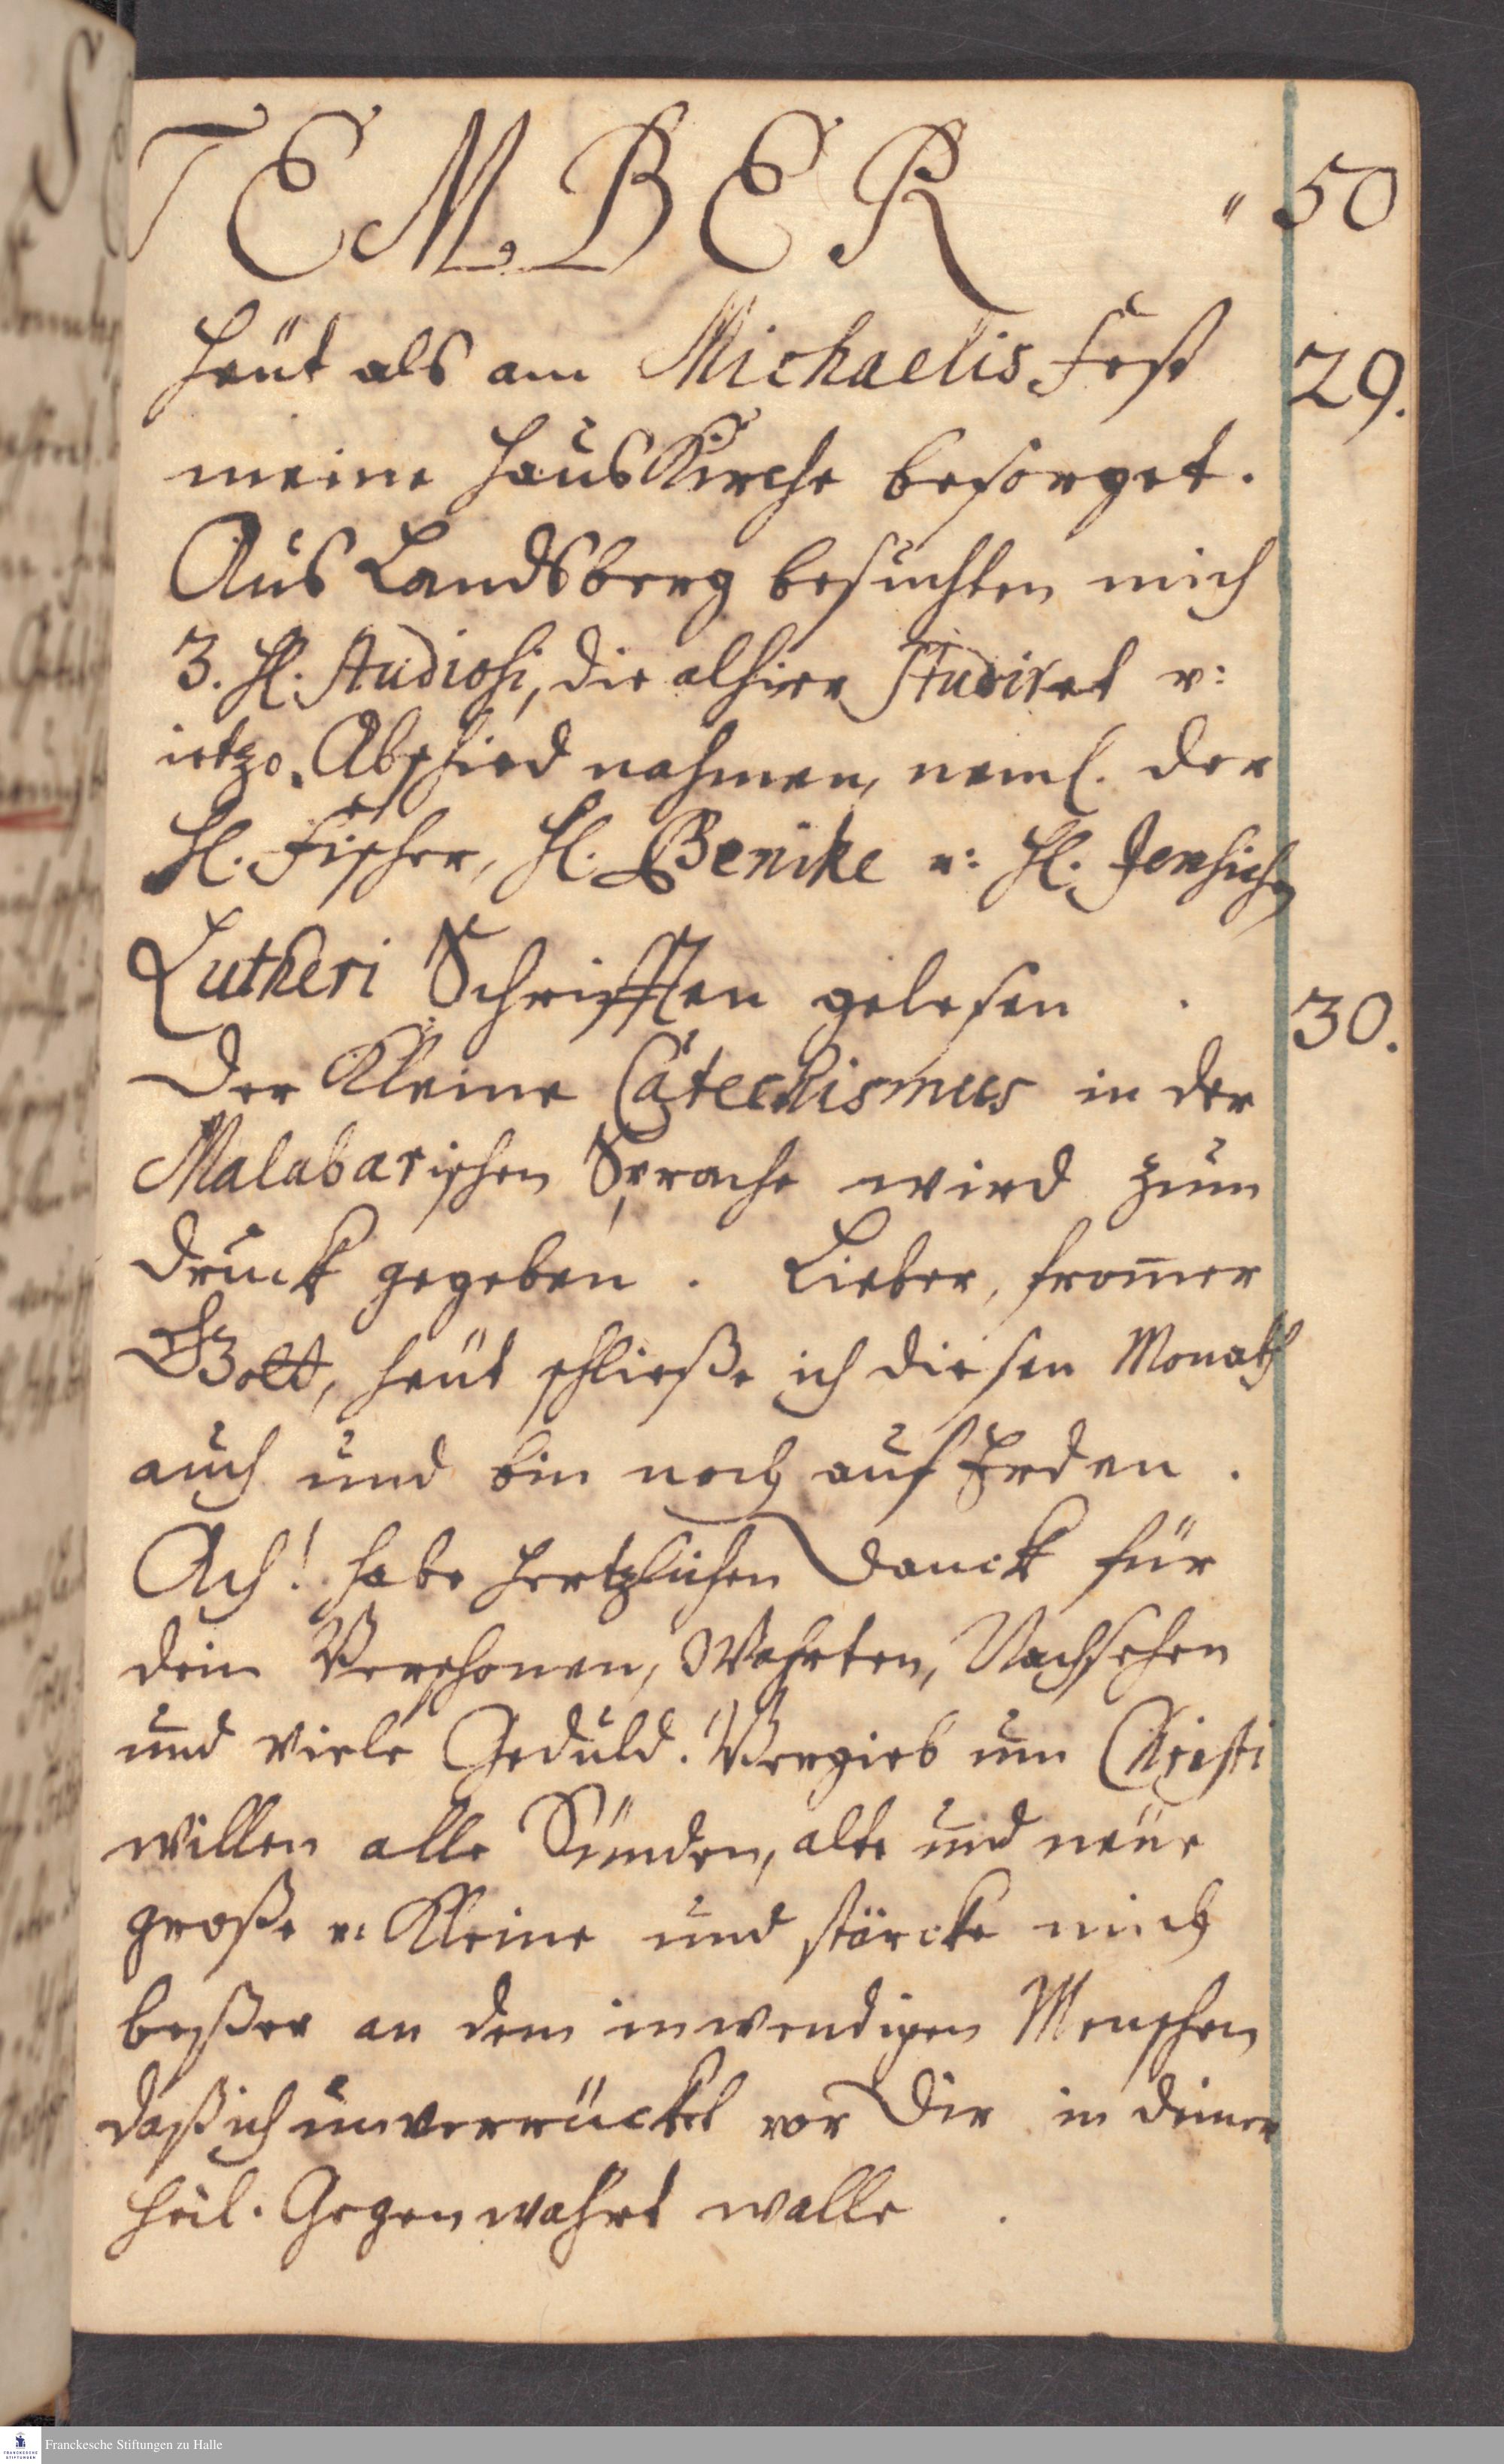 TEMBER " 50
Heüt als am Michaelis Fest 29.
meine HausKirche besorget.
Aus Landsberg besuchten mich
3. H. Studiosi, die alhier Studiret u:
ietzo Abschied nahmen, neml. der
H. Fischer, H. Benike u: H. Jensich
Lutheri Schrifften gelesen . 30.
Der Kleine Catechismus in der
Malabarischen Sprache wird zum
Druck gegeben . Lieber, from̅er
Gott, heüt schließe ich diesen Monath
auch und bin noch auf Erden .
Ach! habe hertzlichen Danck für
dein Verschonen, Wahrten, Nachsehen
und viele Gedult. Vergieb um Christi
willen alle Sünden, alte und neüe
große u: Kleine und stärcke mich
beßer an dem inwendigen Menschen
daß ich unverrückt vor Dir in deiner
heil. Gegenwahrt walle .
Franckesche Stiftungen zu Halle